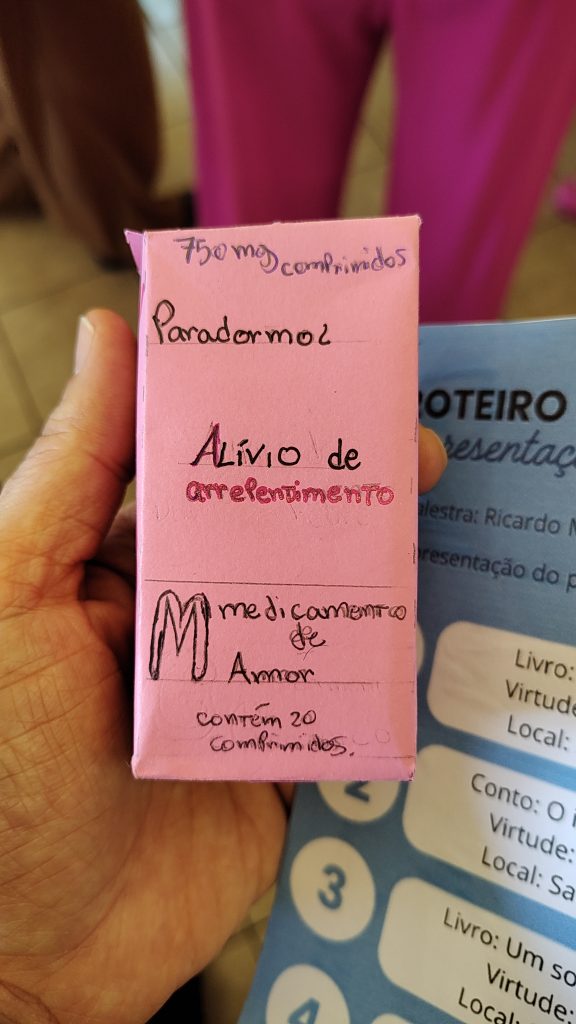 750mg comprimidos
Paradormol
ALívIO de
arrependimento
M medicamento
de
Amor
contém 20
comprimidos.
ROTEIRO
resentaç
alestra: Ricardo
presentação do p
Livro:
Virtude
Local:
2
Conto: O
Virtude:
Local: Sa
3
Livro: Um so
Virtude:
Local:
4